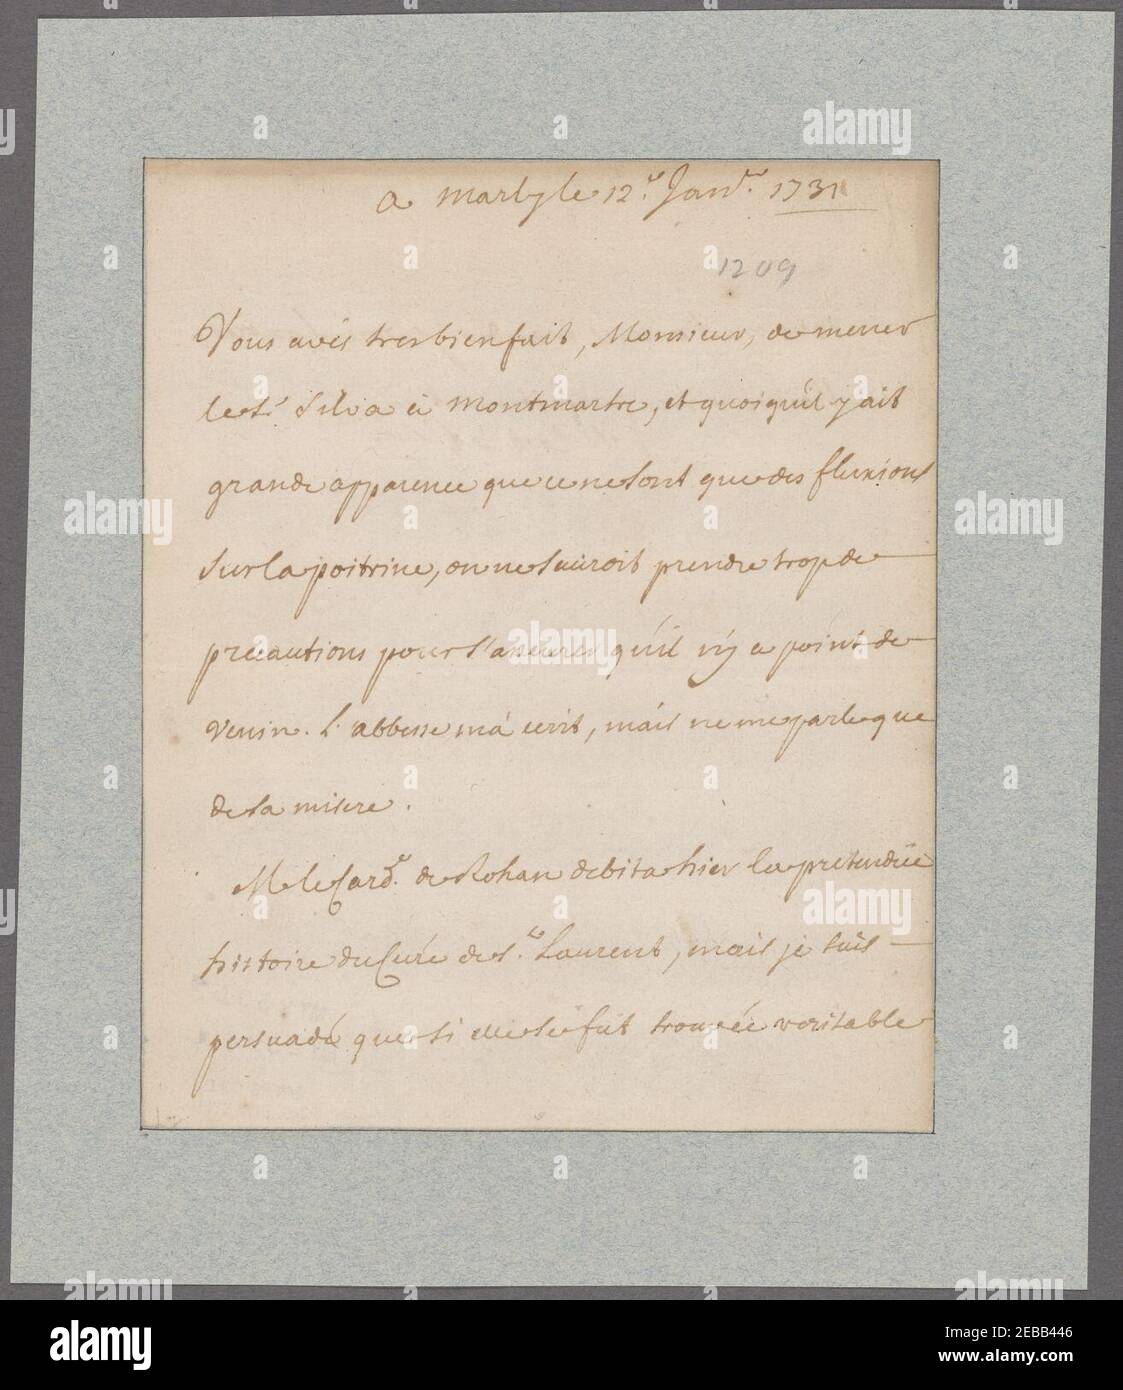 a Marly le 12.e Janv.er 1731
1209
Vous avés tres bien fait, Monsieur, de mener
le Sr Silva à Montmartre, et quoiqu'il y ait
grande apparence que ce ne sont que des fluxions
sur la poitrine, on ne sauroit prendre trop de
precautions pour s'assurer qu'il n'y a point de
venin. L'abbesse m'a ecrit, mais ne me parle que
de sa misere.
M le Card.l de Rohan debita hier la pretendüe
histoire du Curé de St. Laurent, mais je suis
persuadé que si elle se fut trouvée veritable
alamy
alamy
Image ID: 2EBB446
www.alamy.com